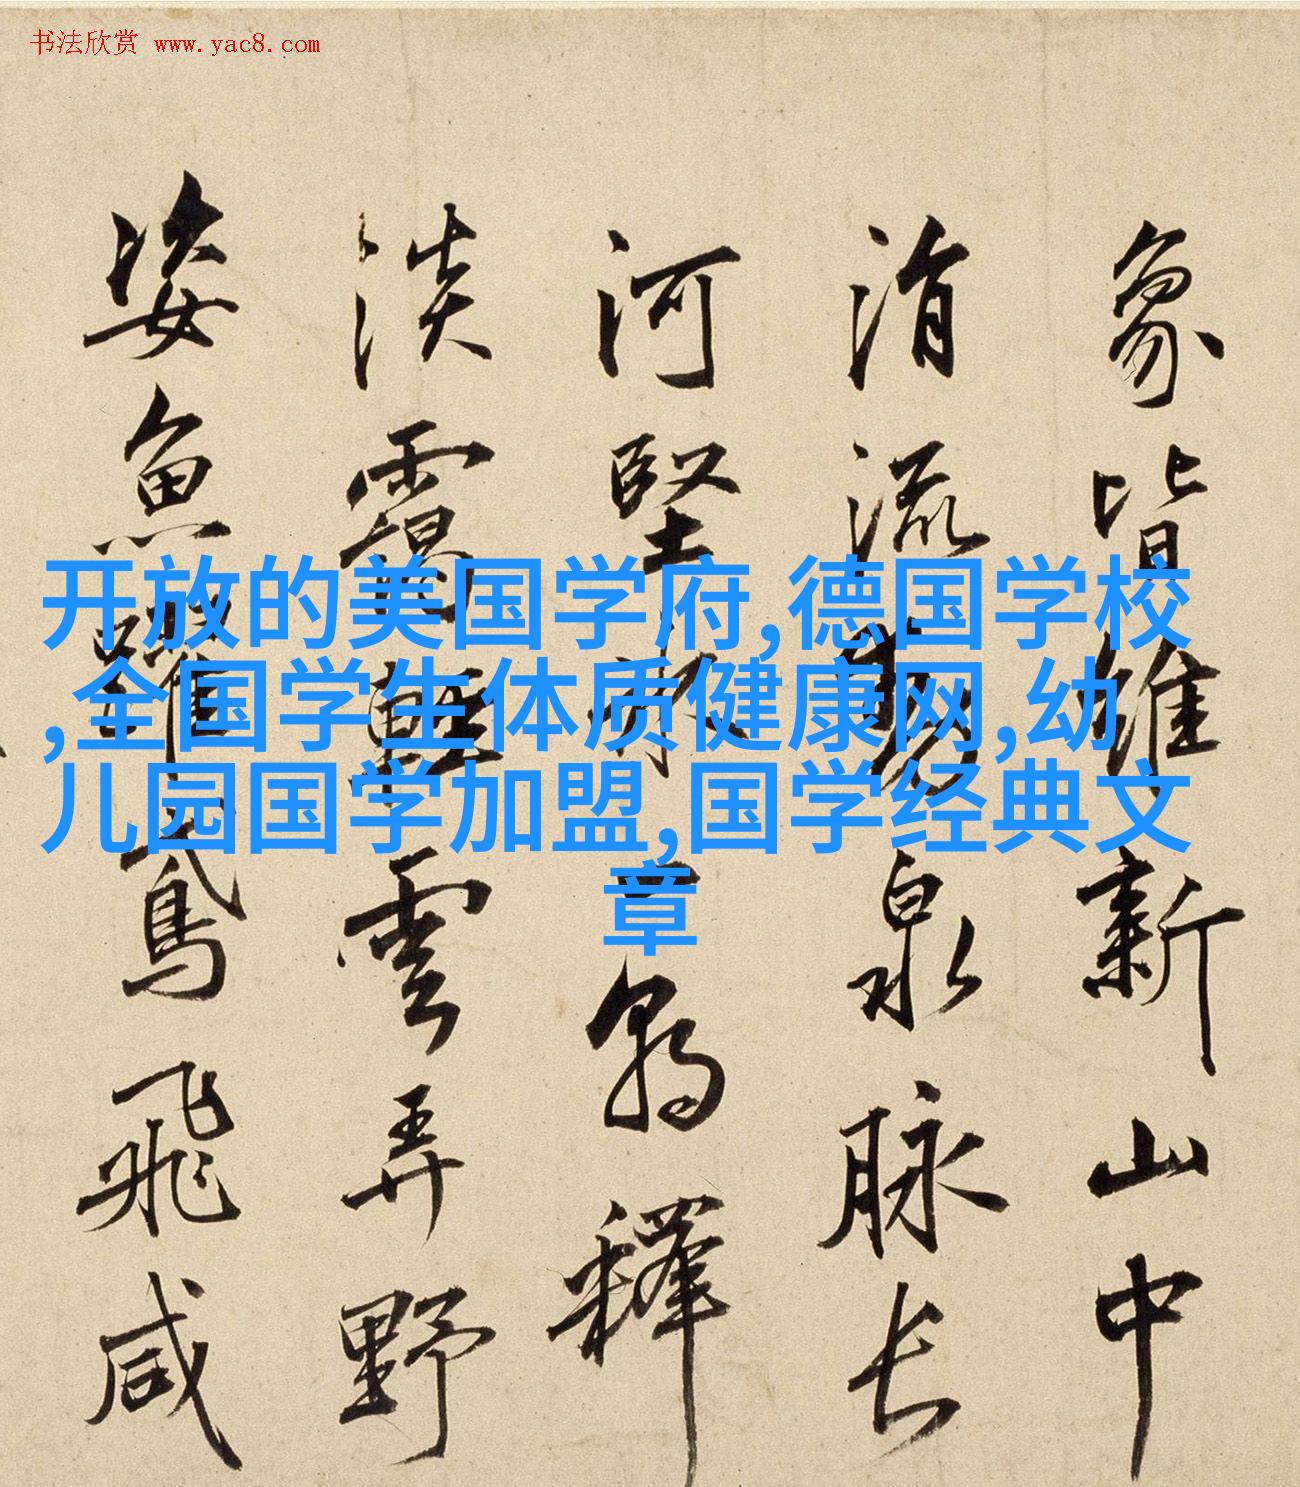 书法欣赏 www.yac8.com
开放的美国学府,德国学校
,全国学生体质健康网,幼
儿园国学加盟,国学经典文
章
象皆維新山中
流泉脉长
河堅冰釋
淡靄輕雲弄野
姿魚躍鳶飛咸